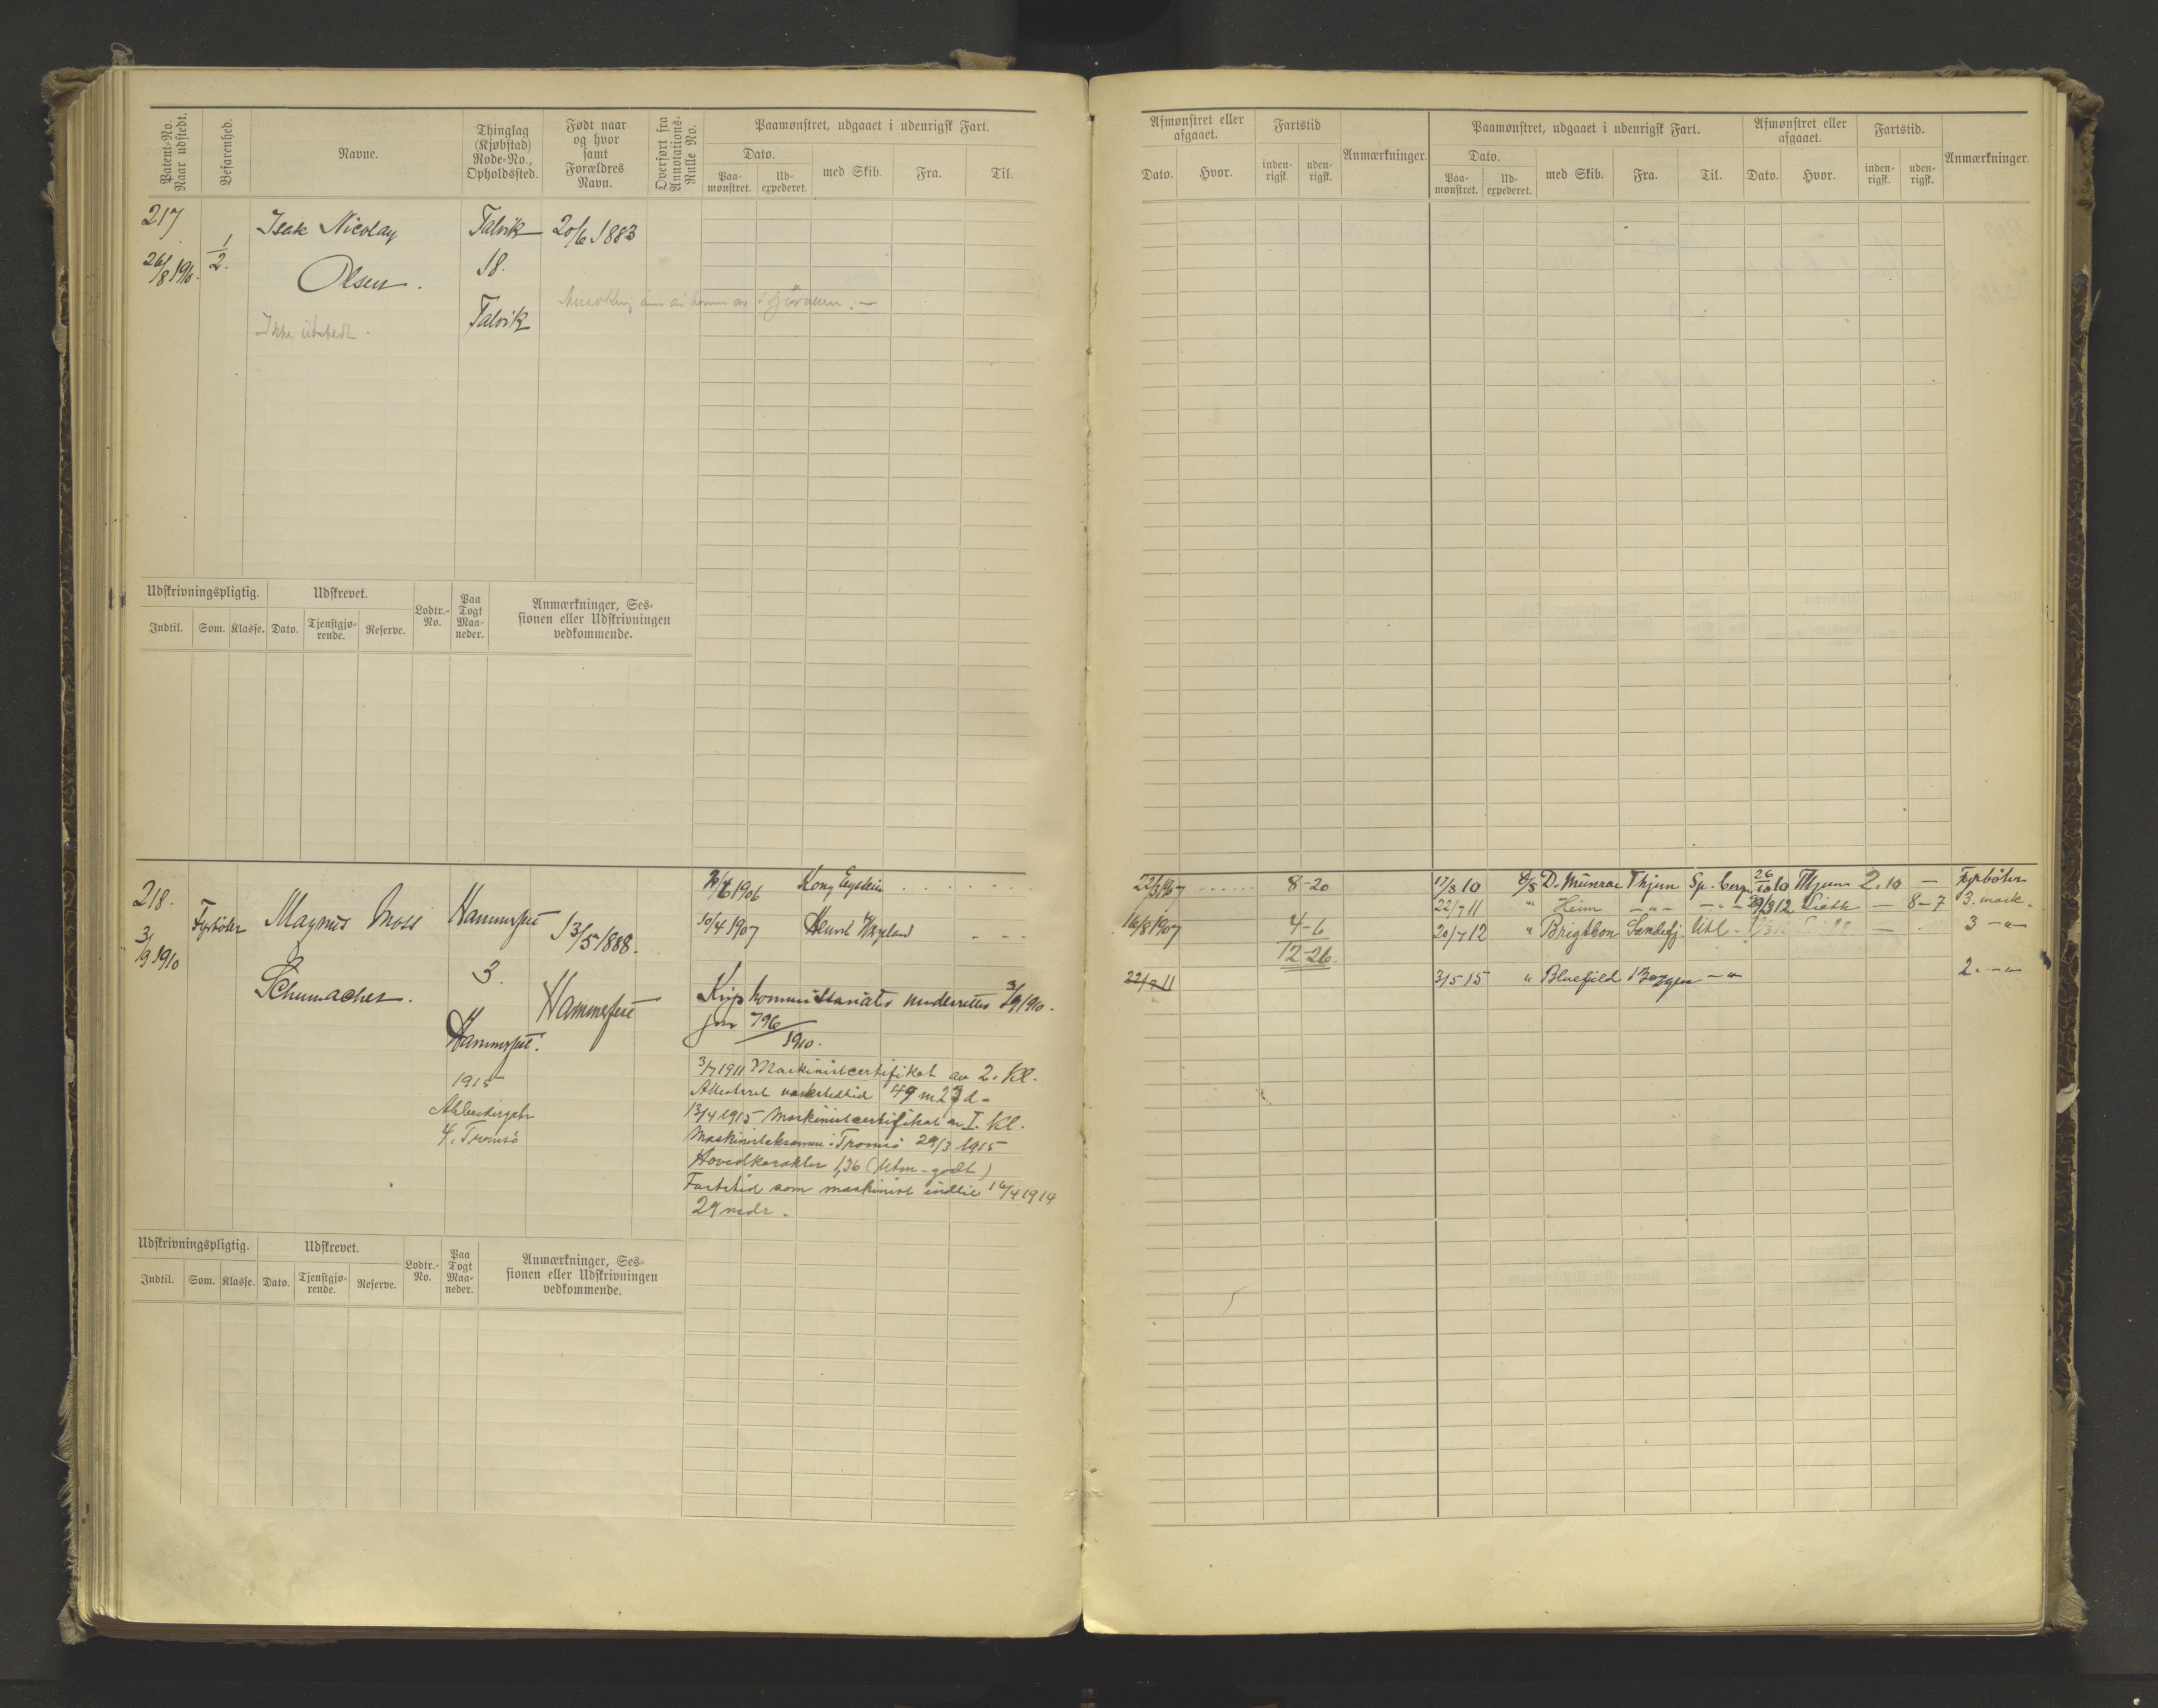 Patent-No. Naar udstedt.
Befarenhed.
Navne.
Thinglag (Kjøbstad) Rode-No., Opholdssted.
Født naar og hvor samt Forældres Navn.
Overført fra Annotations-Rulle No.
Paamønstret, udgaaet i udenrigsk Fart.
Dato.
Paa-mønstret.
Ud-expederet.
med Skib.
Fra.
Til.
217
26/8 1910.
1/2.
Isak Nicolay
Olsen.
Ikke utstedt.
Talvik
18.
Talvik
20/6 1883
Udskrivningspligtig.
Udskrevet.
Lodtr.-No.
Paa Togt Maa-neder.
Anmærkninger, Ses-sionen eller Udskrivningen vedkommende.
Indtil.
Som.
Klasse.
Dato.
Tjenstgjø-rende.
Reserve.
218.
3/9 1910
Fyrbøter
Magnus Moss
Schumacher.
Hammerfest
3.
Hammerfest.
1915
4, Tromsö
13/5 1888.
Hammerfest
1906 Kong Eystein
10/4 1907 Henrik Wergeland
Krigskommissariats underrettes 3/9 1910.
jnr 796/1910.
3/7 1911 Maskinistcertifikat av 2. Kl.
Attesteret verkstedtid 49 m 23 d.
13/4 1915 Maskinistcertifikat av I. Kl.
Maskinisteksamen i Tromsö 29/3 1915
Hovedkarakter 1,36 (Utm. godt)
Fartstid som maskinist indtil 16/4 1914
29 mdr.
Udskrivningspligtig.
Udskrevet.
Lodtr.-No.
Paa Togt Maa-neder.
Anmærkninger, Ses-sionen eller Udskrivningen vedkommende.
Indtil.
Som.
Klasse.
Dato.
Tjenstgjø-rende.
Reserve.
Afmønstret eller afgaaet.
Fartstid
Anmærkninger.
Paamønstret, udgaaet i udenrigsk Fart.
Afmønstret eller afgaaet.
Fartstid.
Anmærkninger.
Dato.
Hvor.
inden-rigsk.
uden-rigsk.
Dato.
Paa-mønstret.
Ud-expederet.
med Skib.
Fra.
Til.
Dato.
Hvor.
inden-rigsk.
uden-rigsk.
22/3 1907 8-20
16/8 1907 4-6
12-26.
22/7 11
17/8 10 D/S D. Munroe Thjem Sp. berg. 26/10 10 Thjem 2.10 — Fyrbøter
22/7 11 " Heim — " — — " — 29/3 12 Lieth — 8-7 3. mask.
20/7 12 " Brigthon Sandefj. Utl. — 3 — " —
3/5 15 " Bluefield Bergen — " 2. — " —